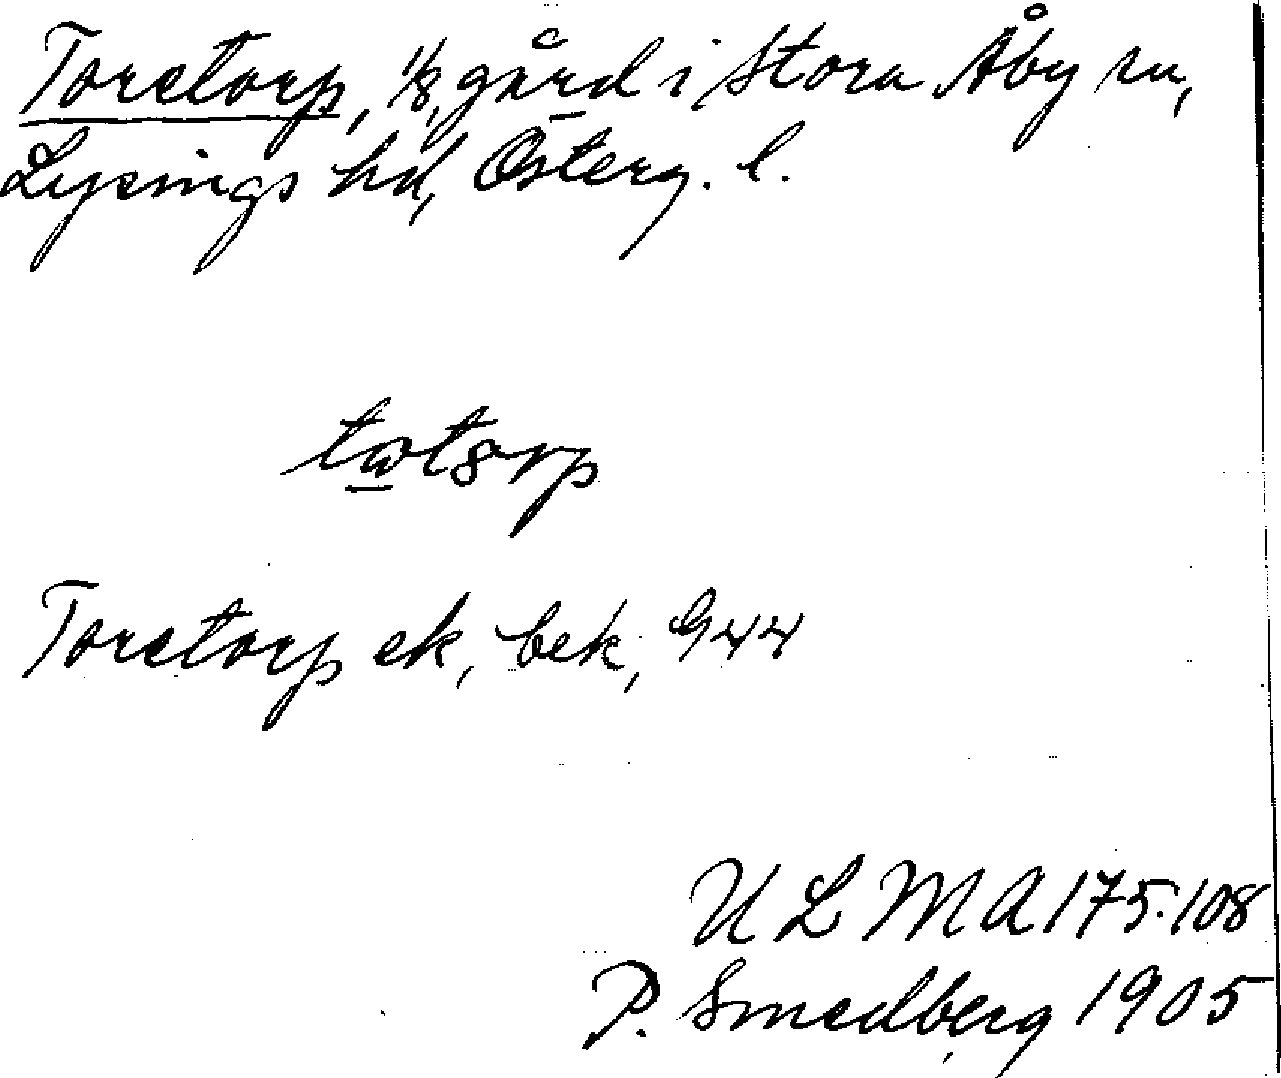 Toretorp, 1/8 gård i Stora Åby sn,
Lysings hd, Österg. l.
Toretorp ek, bek, 944
U L M A 175:108
P. Smedberg 1905